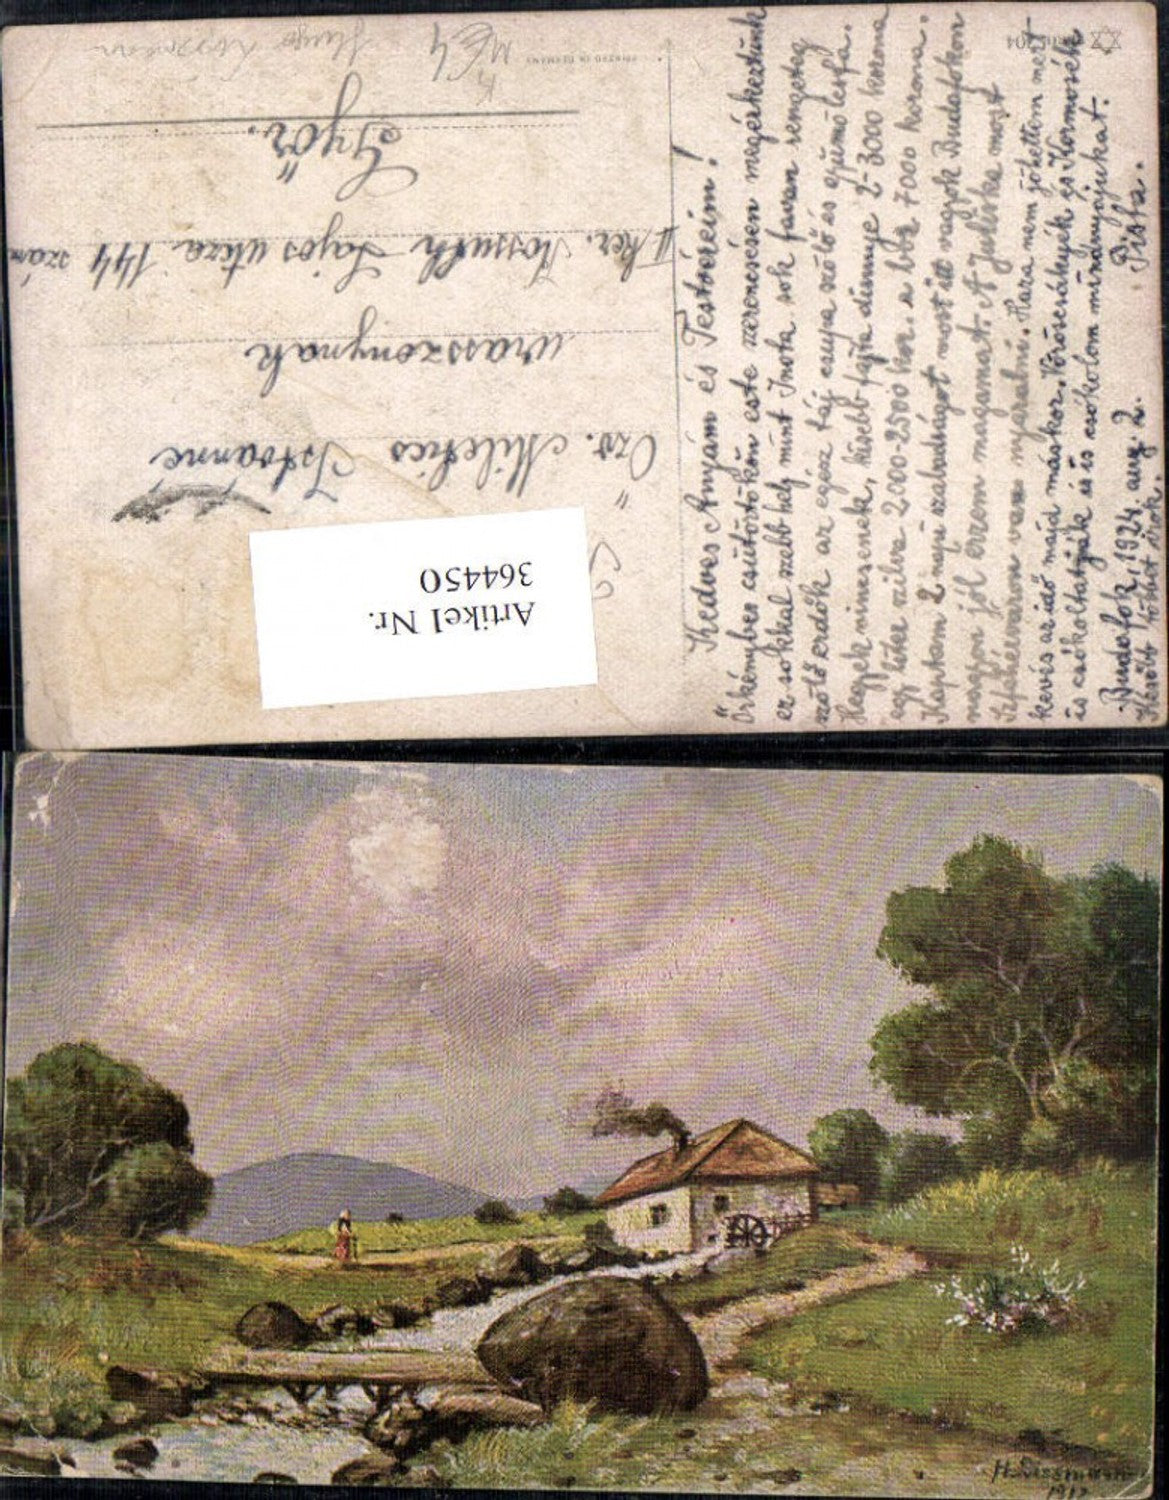 Kedves Anyám és Testvéreim!
Örkényben csütörtökön este szerencsésen megérkeztünk
ez sokkal szebb hely mint Inota sok favan rengeteg
szőlő erdők az egész táj csupa szőlő és gyümölcsfa.
Hegyek nincsenek, később fajta dinnye 2-3000 korona
egy liter szilva 2000-2500 kor. a búza 7000 korona.
Kaptam 2 napi szabadságot most itt vagyok Budafokon
nagyon jól érzem magamat. A Juliska most
Székesfehérváron van nyaralni. Haza nem jöhettem mert
kevés az idő majd máskor. Kőrösciányék és Kormosék
is csókoltatják és én is csókolom mindnyájukat.
Budafok, 1924 aug. 2. Pista.
Később többet írok.
Özv. Miletics Istvánné
urasszonynak
II ker. Kossuth Lajos utcza 144 szám
Győr.
PRINTED IN GERMANY
Artikel Nr.
364450
1912